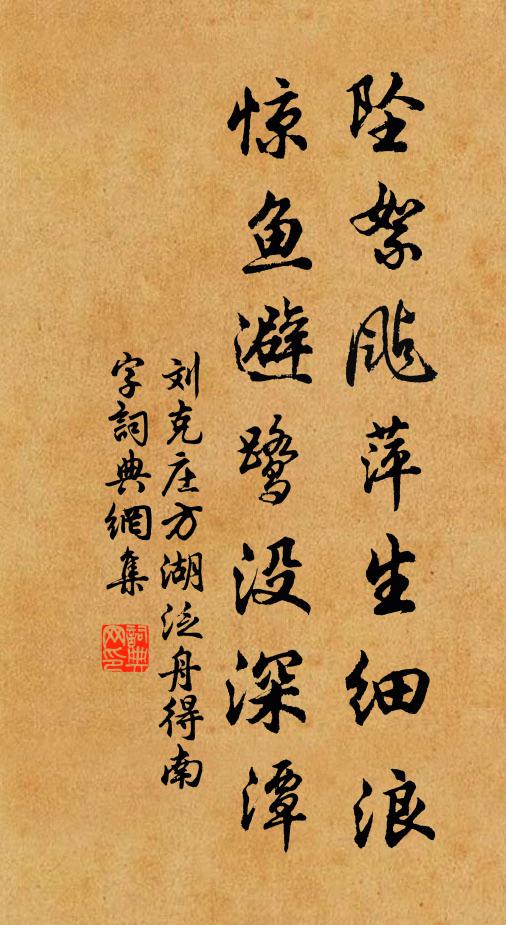 坠絮飐萍生细浪
惊鱼避鹭没深潭
刘克庄方湖泛舟得南
字词典網集
詞典网印